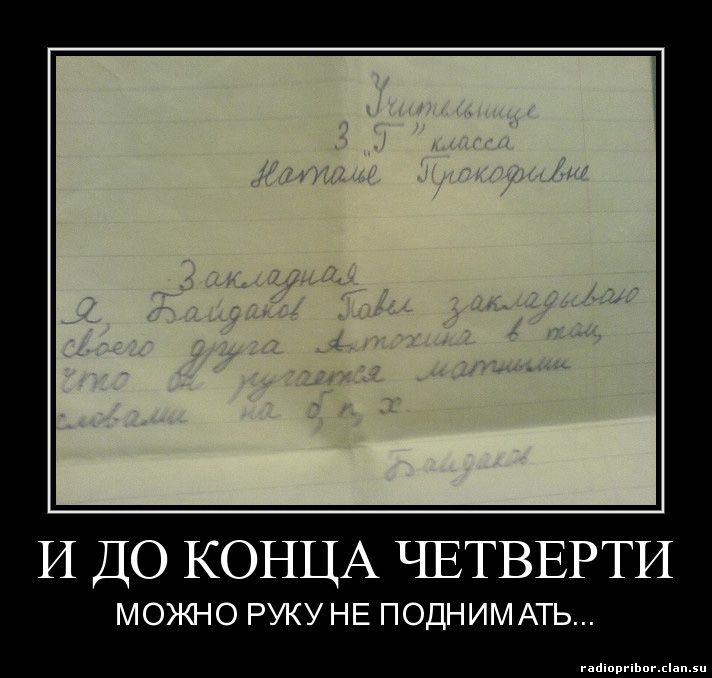 Учительнице
3 „Г” класса
Наталье Прокофивне
Закладная
Я, Байдаков Павел закладываю
своего друга Антохина в том,
что он ругается матными
словами на б, п, х.
Байдаков
И ДО КОНЦА ЧЕТВЕРТИ
МОЖНО РУКУ НЕ ПОДНИМАТЬ...
radiopribor.clan.su